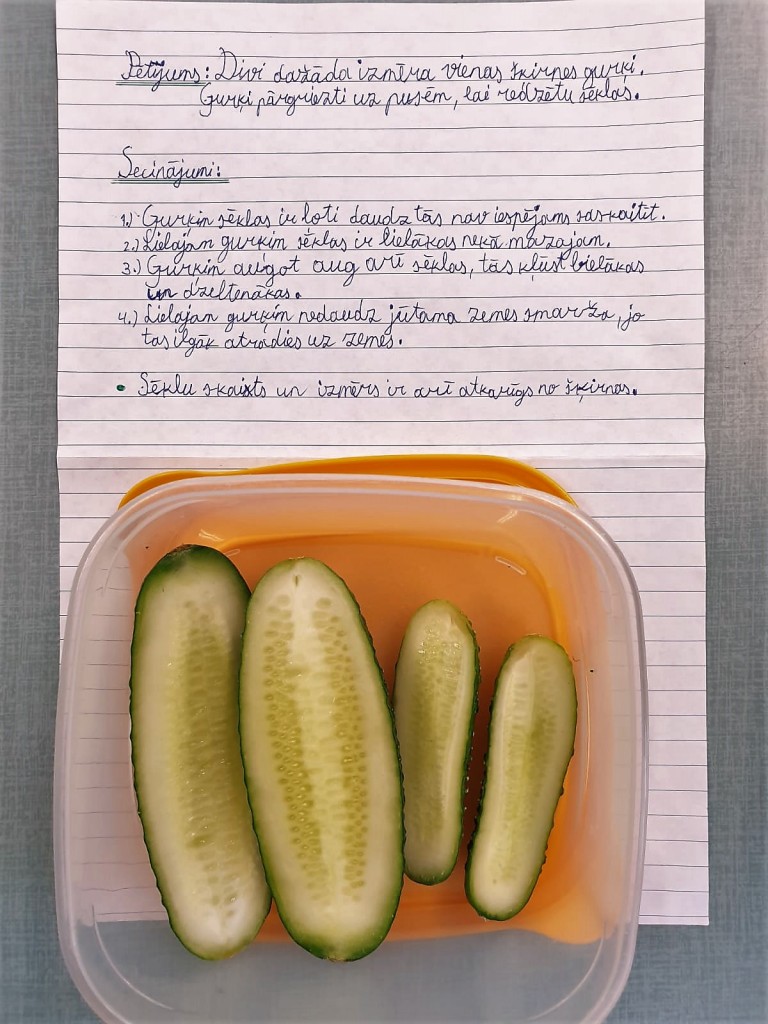 Pētījums: Divi dažāda izmēra vienas šķirnes gurķi.
Gurķi pārgriezti uz pusēm, lai redzētu sēklas.
Secinājumi:
1.) Gurķim sēklas ir ļoti daudz tās nav iespējams saskaitīt.
2.) Lielajam gurķim sēklas ir lielākas nekā mazajam.
3.) Gurķim augot aug arī sēklas, tās kļūst lielākas
un dzeltenākas.
4.) Lielajam gurķim nedaudz jūtama zemes smarža, jo
tas ilgāk atradies uz zemes.
• Sēklu skaits un izmērs ir arī atkarīgs no šķirnes.